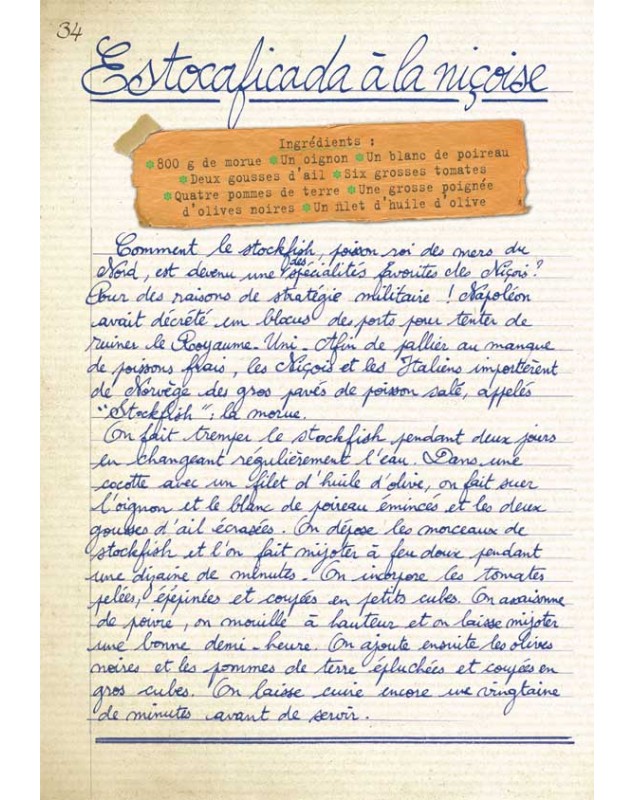 34
Estocaficada à la niçoise
Ingrédients :
*800 g de morue *Un oignon *Un blanc de poireau
*Deux gousses d'ail *Six grosses tomates
*Quatre pommes de terre *Une grosse poignée
d'olives noires *Un filet d'huile d'olive
Comment le stockfish, poisson roi des mers du
Nord, est devenu une des spécialités favorites des Niçois ?
Pour des raisons de stratégie militaire ! Napoléon
avait décrété un blocus des ports pour tenter de
ruiner le Royaume-Uni. Afin de pallier au manque
de poissons frais, les Niçois et les Italiens importèrent
de Norvège des gros pavés de poisson salé, appelés
"Stockfish" : la morue.
On fait tremper le stockfish pendant deux jours
en changeant régulièrement l'eau. Dans une
cocotte avec un filet d'huile d'olive, on fait suer
l'oignon et le blanc de poireau émincés et les deux
gousses d'ail écrasées. On dépose les morceaux de
stockfish et l'on fait mijoter à feu doux pendant
une dizaine de minutes. On incorpore les tomates
pelées, épépinées et coupées en petits cubes. On assaisonne
de poivre, on mouille à hauteur et on laisse mijoter
une bonne demi-heure. On ajoute ensuite les olives
noires et les pommes de terre épluchées et coupées en
gros cubes. On laisse cuire encore une vingtaine
de minutes avant de servir.